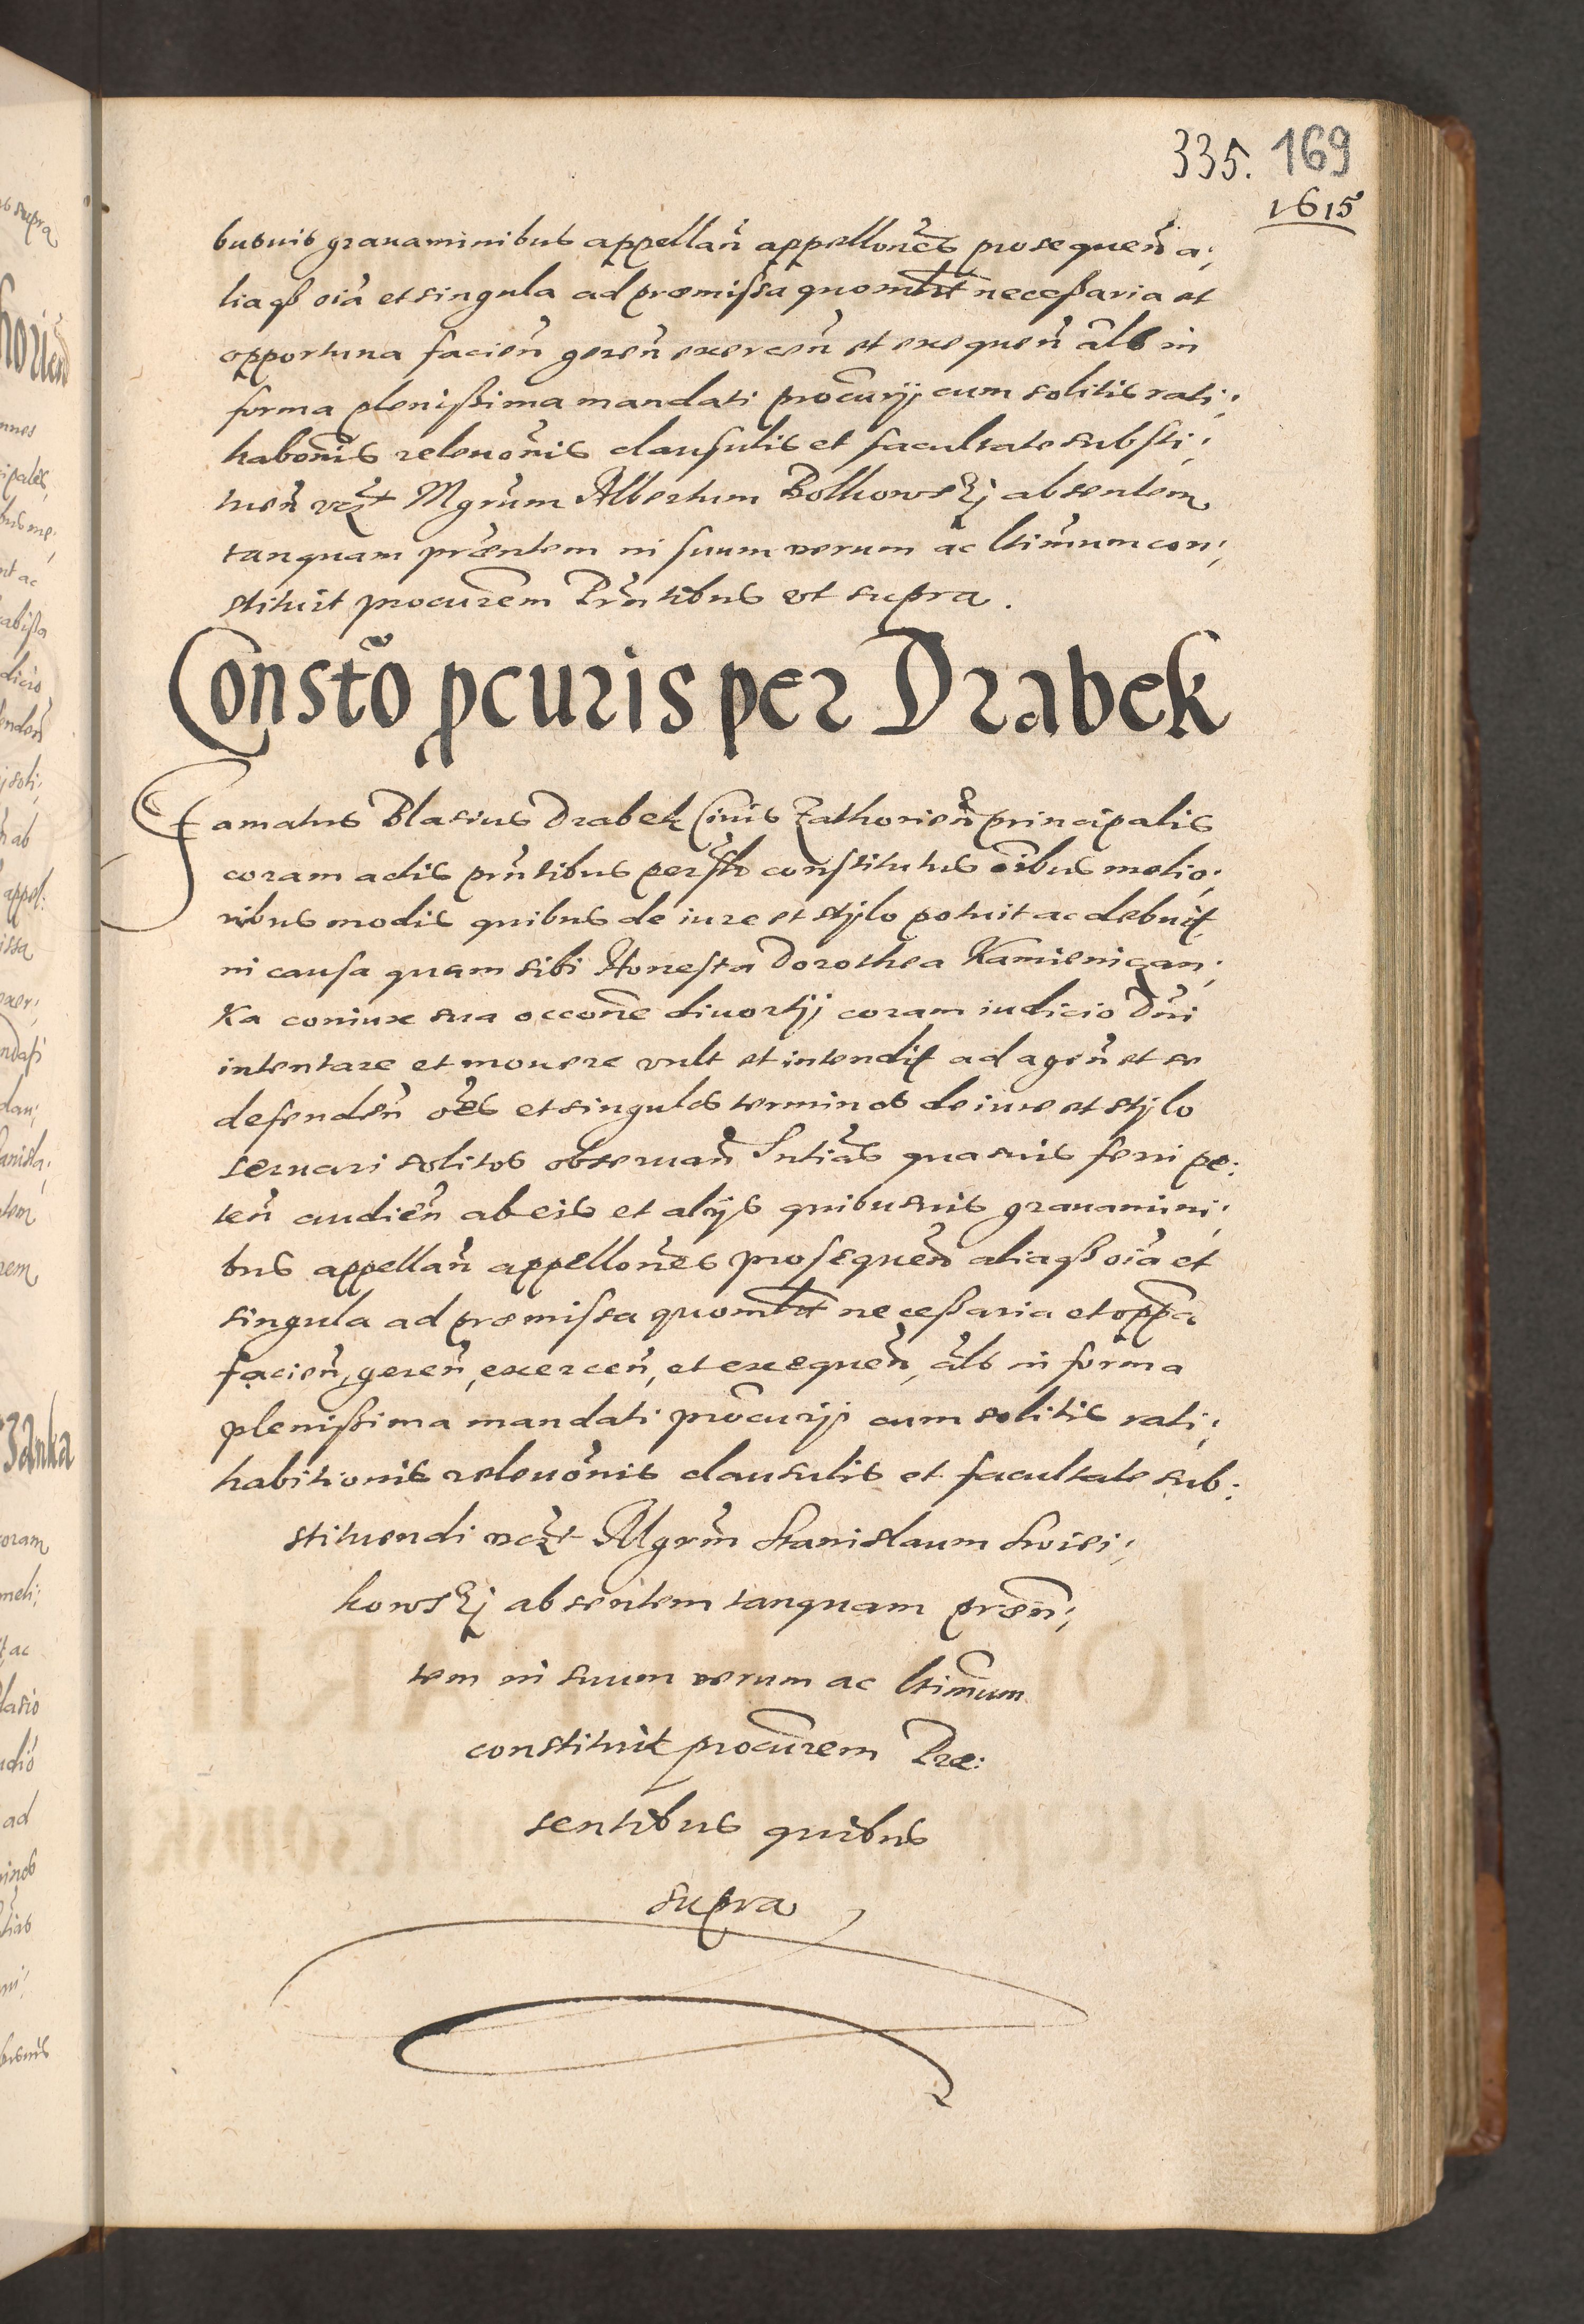 335. 169
1615
busuis grauaminibus appellan̄ appellonēs prosequen̄ a;
liaqß oīa et singula ad præmissa quomlt necessaria et
opportuna facien̄ geren̄ exercen̄ et exequen̄ āls in
forma plenißima mandati procurij cum solitis rati;
habonīs releuonīs clausulis et facultate substi;
tuen̄ vczt Mgrūm Albertum Bolkowskj absentem
tanquam præntem in suum verum ac ltimum con;
stituit procurem Prntibus vt supra.
Constō pcuris per Drabek
Famatus Blasius Drabek Ciuis Zathorien̄ principalis
coram actis prn̄tibus persl̄r constitutus oībus melio;
ribus modis quibus de iure et stylo potuit ac debuit
in causa quam sibi Honesta Dorothea Kamienican;
Ka coniux sua occonē diuortij coram iudicio Dnī
intentare et mouere vult et intendit ad agen̄ et se
defenden̄ oēs et singulos terminos de iure et stylo
seruari solitos obseruan̄ Sntiās quasuis ferri pe:
ten̄ audien̄ ab eis et alijs quibusuis grauamini;
bus appellan̄ appellonēs prosequen̄ aliaqß oīa et
singula ad præmissa quomlt necessaria et oppā
facien̄, geren̄, exercen̄, et exequen̄, āls in forma
plenißima mandati procurij cum solitis rati;
habitionis releuonīs clausulis et facultate sub;
stituendi vczt Mgrm̄ Stanislaum Swiei;
kowskj absentem tanquam præn̄;
tem in suum verum ac ltimum
constituit procurem Præ:
sentibus quibus
supra